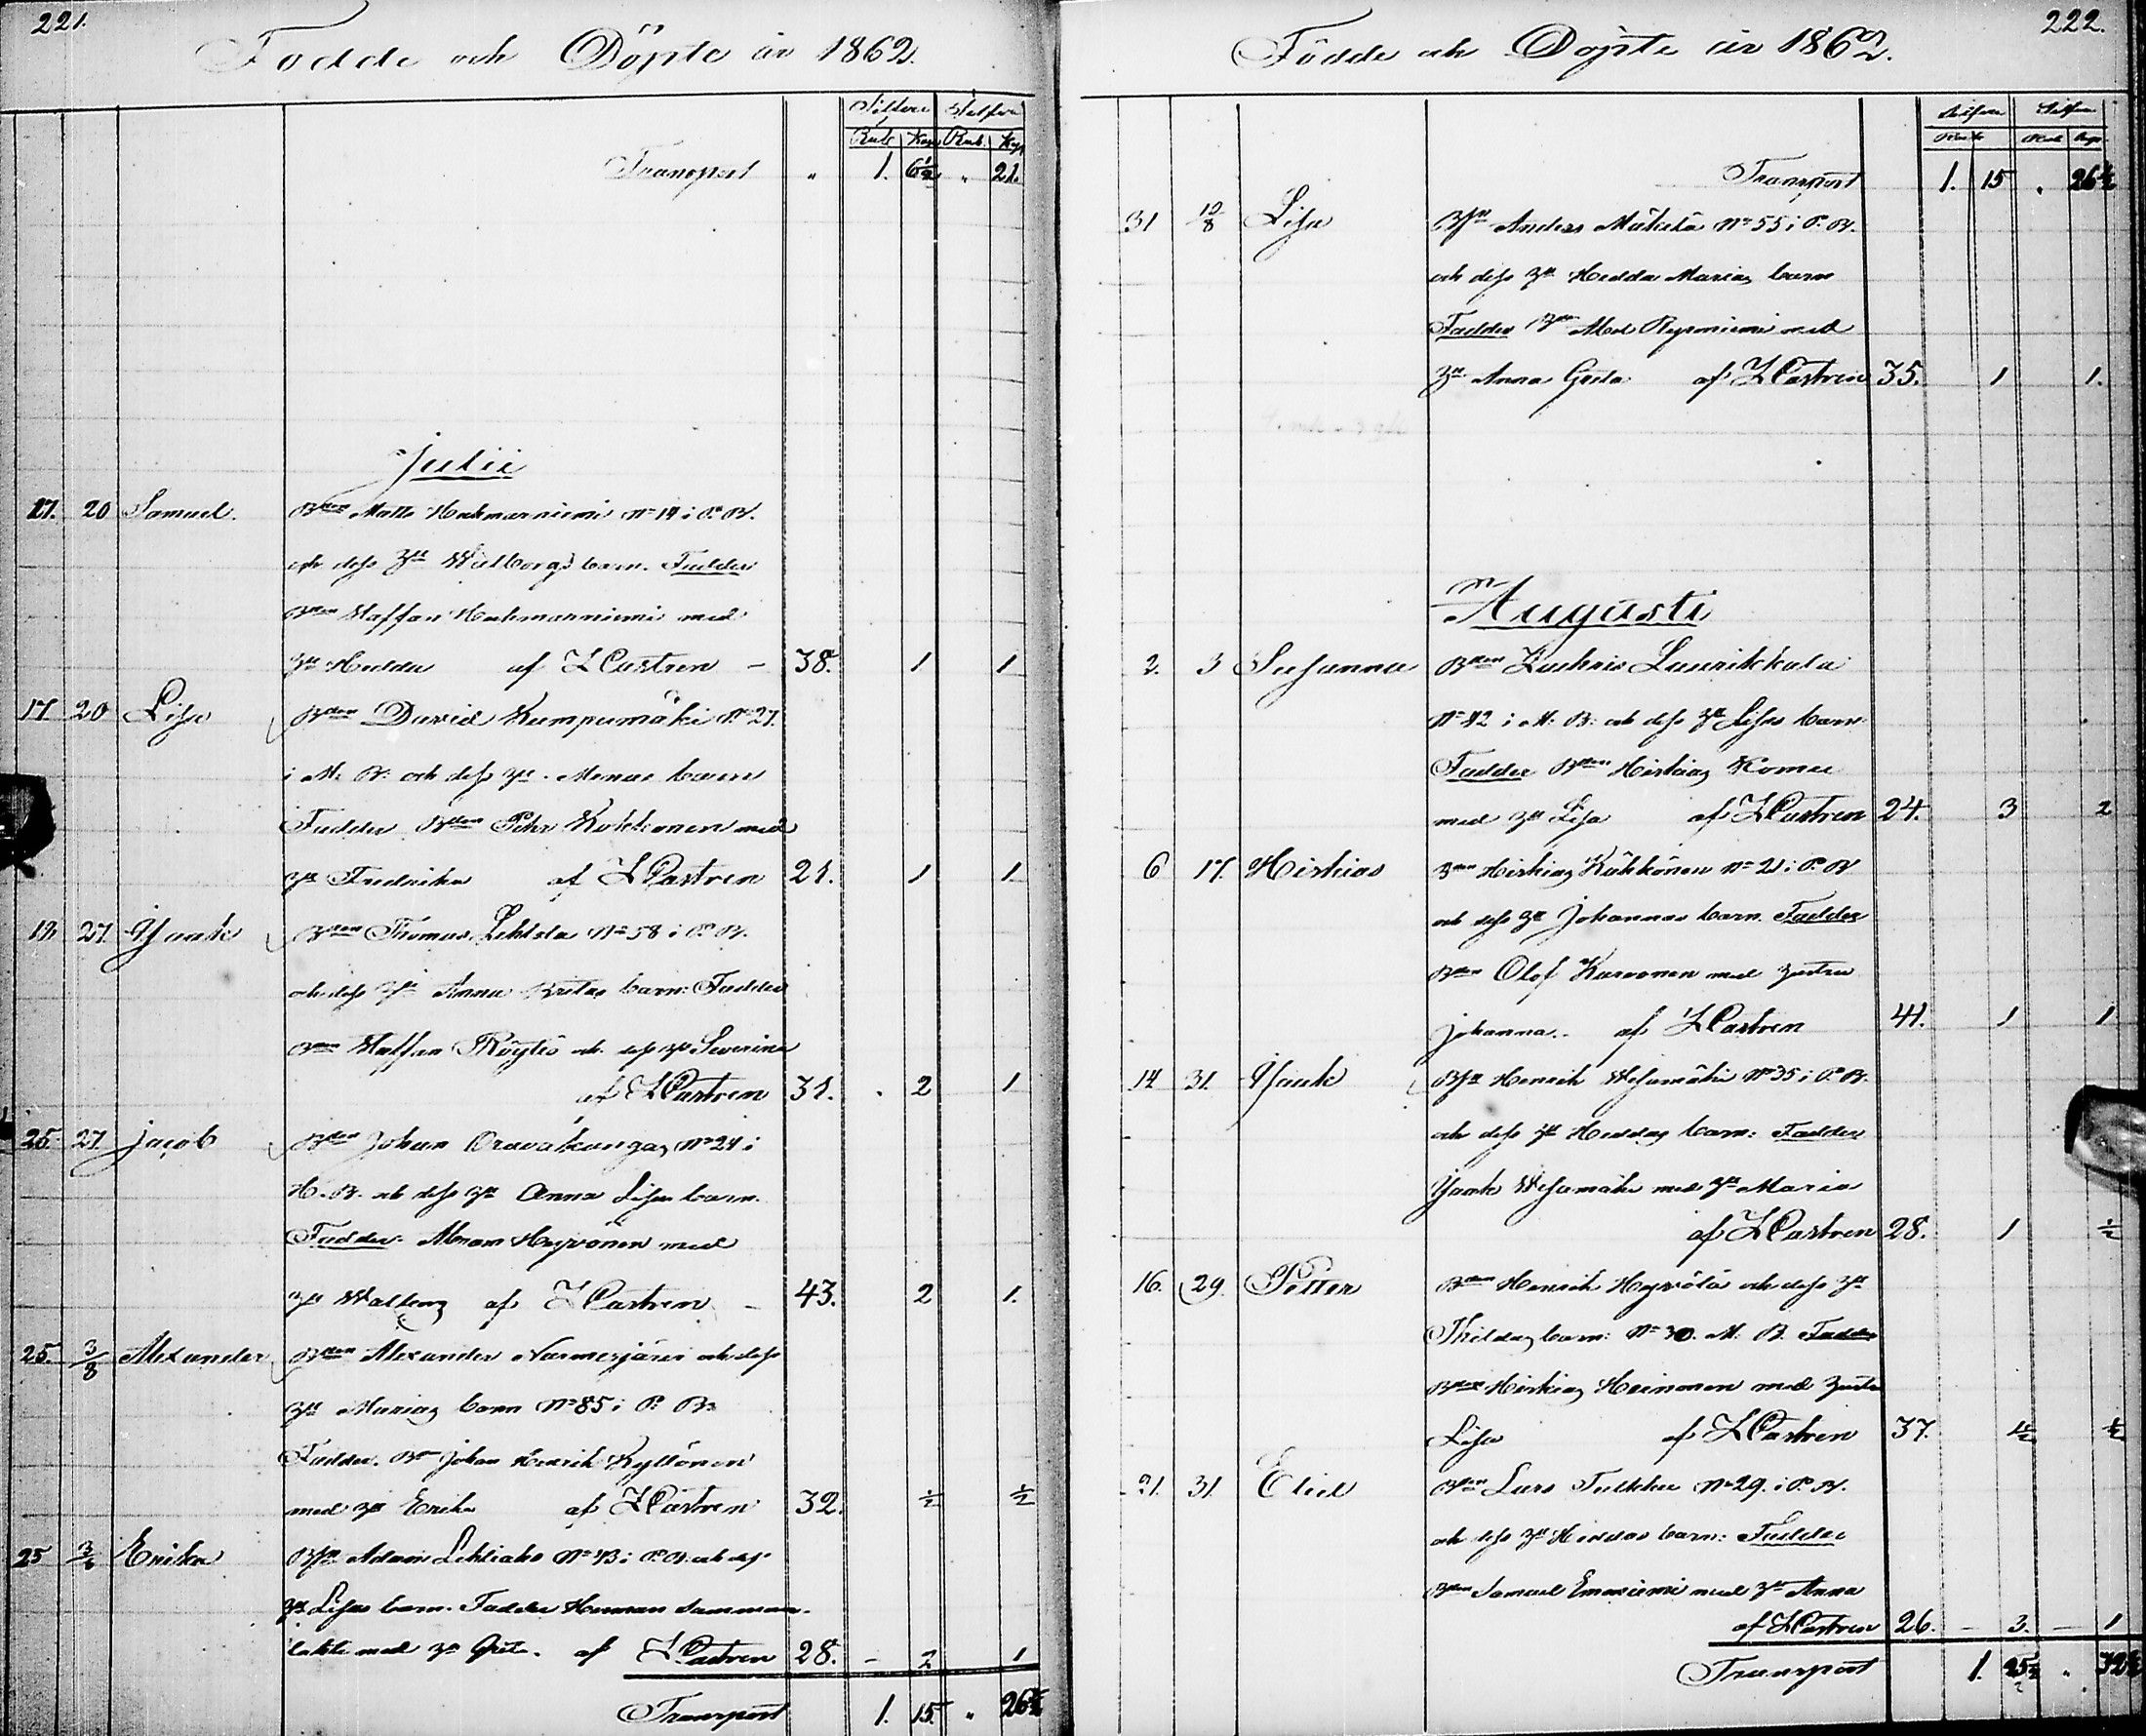 221.
Födde och Döpte år 1862.
Silfver Silfver
Rub Kop Rub. Kop
Transport " 1. 6½ " 21.
Julii
17. 20 Samuel. Bden Matts Hakmarniemi No 14 i P. B.
och dess Hu Walborgs barn. Fadder
Bden Staffan Hakmarniemi med
Hu Hedda af Z Castren - 38. 1 1
17 20 Lisa Bden David Kumpumäki No 27.
i M. B. och dess Hu. Menas barn
Fadder Bden Pehr Kokkonen med
Hu Fredrika af Z Castren 21. 1 1
19 27 Isaak Bden Thomas Lehtola No 58 i P. B.
och dess Hu Anna Britas barn: Fadder
Bden Staffan Röytiö och dess Hu Severina
af Z Castren 31. 2 1
25. 27 Jacob Bden Johan Oravakangas No 24 i
H. B. och dess Hu Anna Lisas barn.
Fadder Abram Hyvönen med
Hu Walborg af Z Castren - 43. 2 1.
25. 3/8 Alexander Bden Alexander Narmerjärvi och dess
Hu Marias barn No 85 i P. B.
Fadder. Bn Johan Henrik Kyllönen
med Hu Erika af Z Castren 32. ½ ½
25 3/8 Erika Adam Lehtiaho No 43 i P. B. och dess
Hu Lisas barn. Fadder Herman Samman-
lakti med Hu Greta. af Z Castren 28. - 2 1
Transport 1. 15. " 26½
222.
Födde och Döpte år 1862.
Silfver Silfver
Transport 1. 15 " 26½
31 10/8 Lisa Anders Mäkelä No 55 i P. B.
och dess Hu Hedda Marias barn
Fadder Bden Abel Ryönieemi med
Hu Anna Greta af Z Castren 35. 1 1.
Augusti
2. 3 Susanna Bden Zachris Laurikkala
No 42 i M. B. och dess Hu Lisas barn
Fadder Bden Hiskias Komu
med Hu Lisa af Z Castren 24. 3 2
6 17. Hiskias Bden Hiskias Kähkönen No 21 i P. B
och dess Hu Johannas barn. Fadder
Bden Olof Karvonen med hustru
Johanna. af Z Castren 41. 1 1
14 31. Isaak Henrik Wesamäki No 35 i P. B.
och dess Hu Heddas barn: Fadder
Isaak Wesamäki med Hu Maria
af Z Castren 28. 1 ½
16. 29. Petter Bden Henrik Hyvölä och dess Hu
Thildas barn: No 30. M. B. Fadder
Bden Hiskias Heinonen med hustru
Lisa af Z Castren 37. 1½ ½
21. 31. Eliel Bden Lars Tulkku No 29. i P. B.
och dess Hu Heddas barn: Fadder
Bden Samuel Emäniemi med Hu Anna
af Z Castren 26. - 3. - 1
Transport 1. 25½ " 32½